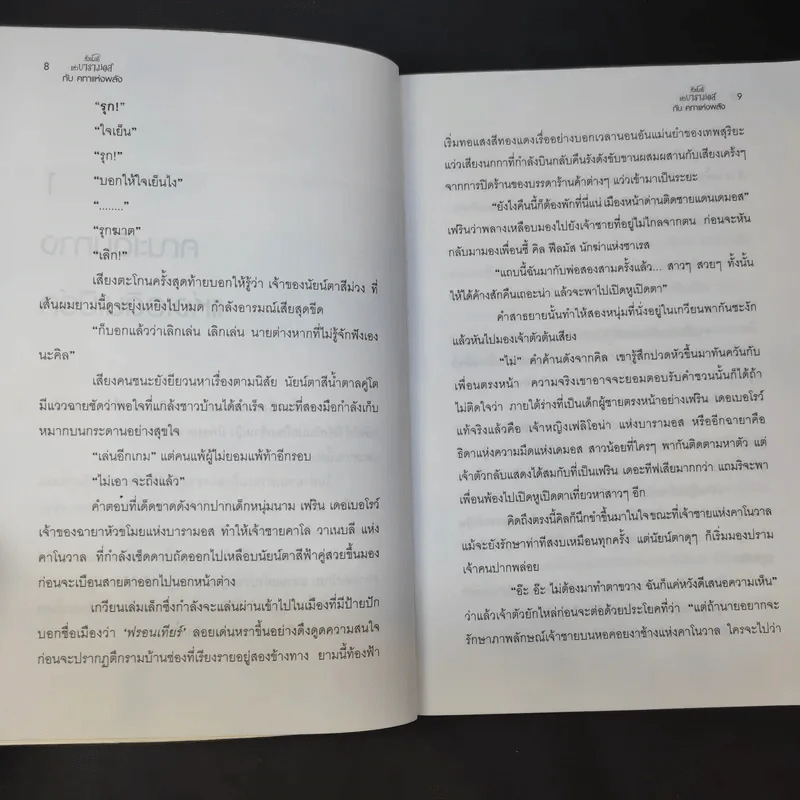 8
หัวขโมย
แห่งบารามอส
กับ คทาแห่งพลัง
“รุก!”
“ใจเย็น”
“รุก!”
“บอกให้ใจเย็นไง”
“........”
“รุกฆาต”
“เลิก!”
เสียงตะโกนครั้งสุดท้ายบอกให้รู้ว่า เจ้าของนัยน์ตาสีม่วง ที่
เส้นผมยามนี้ดูจะยุ่งเหยิงไปหมด กำลังอารมณ์เสียสุดขีด
“ก็บอกแล้วว่าเลิกเล่น เลิกเล่น นายต่างหากที่ไม่รู้จักฟังเอง
นะคิล”
เสียงคนชนะยังยียวนหาเรื่องตามนิสัย นัยน์ตาสีน้ำตาลคู่โต
มีแววฉายชัดว่าพอใจที่แกล้งชาวบ้านได้สำเร็จ ขณะที่สองมือกำลังเก็บ
หมากบนกระดานอย่างสุขใจ
“เล่นอีกเกม” แต่คนแพ้ผู้ไม่ยอมแพ้ท้าอีกรอบ
“ไม่เอา จะถึงแล้ว”
คำตอบที่เด็ดขาดดังจากปากเด็กหนุ่มนาม เฟริน เดอเบอโรว์
เจ้าของฉายาหัวขโมยแห่งบารามอส ทำให้เจ้าชายคาโล วาเนบลี แห่ง
คาโนวาล ที่กำลังเช็ดดาบถัดออกไปเหลือบนัยน์ตาสีฟ้าคู่สวยขึ้นมอง
ก่อนจะเบือนสายตาออกไปนอกหน้าต่าง
เกวียนเล่มเล็กซึ่งกำลังจะแล่นผ่านเข้าไปในเมืองที่มีป้ายปัก
บอกชื่อเมืองว่า ‘ฟรอนเทียร์’ ลอยเด่นหราขึ้นอย่างดึงดูดความสนใจ
ก่อนจะปรากฏตึกรามบ้านช่องที่เรียงรายอยู่สองข้างทาง ยามนี้ท้องฟ้า
หัวขโมย
แห่งบารามอส
กับ คทาแห่งพลัง
9
เริ่มทอแสงสีทองแดงเรื่ออย่างบอกเวลานอนอันแม่นยำของเทพสุริยะ
แว่วเสียงนกกาที่กำลังบินกลับคืนรังดังขับขานผสมผสานกับเสียงเคร้งๆ
จากการปิดร้านของบรรดาร้านค้าต่างๆ แว่วเข้ามาเป็นระยะ
“ยังไงคืนนี้ก็ต้องพักที่นี่แน่ เมืองหน้าด่านติดชายแดนเดมอส”
เฟรินว่าพลางเหลือบมองไปยังเจ้าชายที่อยู่ไม่ไกลจากตน ก่อนจะหัน
กลับมามองเพื่อนซี้ คิล ฟีลมัส นักฆ่าแห่งซาเรส
“แถบนี้ฉันมากับพ่อสองสามครั้งแล้ว... สาวๆ สวยๆ ทั้งนั้น
ให้ได้ค้างสักคืนเถอะน่า แล้วจะพาไปเปิดหูเปิดตา”
คำสาธยายนั้นทำให้สองหนุ่มที่นั่งอยู่ในเกวียนพากันชะงัก
แล้วหันไปมองเจ้าตัวต้นเสียง
“ไม่” คำค้านดังจากคิล เขารู้สึกปวดหัวขึ้นมาทันควันกับ
เพื่อนตรงหน้า ความจริงเขาอาจจะยอมตอบรับคำชวนนั้นก็ได้ถ้า
ไม่ติดใจว่า ภายใต้ร่างที่เป็นเด็กผู้ชายตรงหน้าอย่างเฟริน เดอเบอโรว์
แท้จริงแล้วคือ เจ้าหญิงเฟลิโอน่า แห่งบารามอส หรืออีกฉายาคือ
ธิดาแห่งความมืดแห่งเดมอส สาวน้อยที่ใครๆ พากันติดตามหาตัว แต่
เจ้าตัวกลับแสดงได้สมกับที่เป็นเฟริน เดอะทีฟเสียมากกว่า แถมริจะพา
เพื่อนพ้องไปเปิดหูเปิดตาเที่ยวหาสาวๆ อีก
คิดถึงตรงนี้คิลก็นึกขำขึ้นมาในใจขณะที่เจ้าชายแห่งคาโนวาล
แม้จะยังรักษาท่าทีสงบเหมือนทุกครั้ง แต่นัยน์ตาดุๆ ก็เริ่มมองปราม
เจ้าคนปากพล่อย
“อ๊ะ อ๊ะ ไม่ต้องมาทำตาขวาง ฉันก็แค่หวังดีเสนอความเห็น”
ว่าแล้วเจ้าตัวยักไหล่ก่อนจะต่อด้วยประโยคที่ว่า “แต่ถ้านายอยากจะ
รักษาภาพลักษณ์เจ้าชายบนหอคอยงาช้างแห่งคาโนวาล ใครจะไปว่า